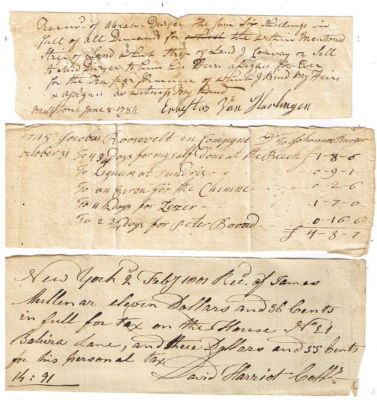 Received of Abraham Burger the Sum Six Shillings in
full of all Demands for the within Mentioned
Strip of Land which Strip of Land I Convay or Sell
to said Burger to him his Heirs assigns for Ever
for the Performance of which I Bind my Heirs
or assigns as witness My hand
Millstone June 8. 1784 Ernestus Van Harlingen
1715 Jacobus Roosevelt en Compyne Dr To Johannes Burger
October 31 To 4 3/4 Days for my self Done at the £ 1-8-6
To Liquar at Sundris - 0-9-1
To an eiron for the Chimne - 0-2-6
To 4 1/2 days for - 1-7-0
To 2 3/4 days for Peter - 0-16-6
£ 4-3-7
New York 2 Feby 1801 Rec. of James
Mullenar eleven Dollars and 36 Cents
in full for tax on the House No 21
Lane, and three Dollars and 55 Cents
for his personal tax
14:91 David Harriot Collr